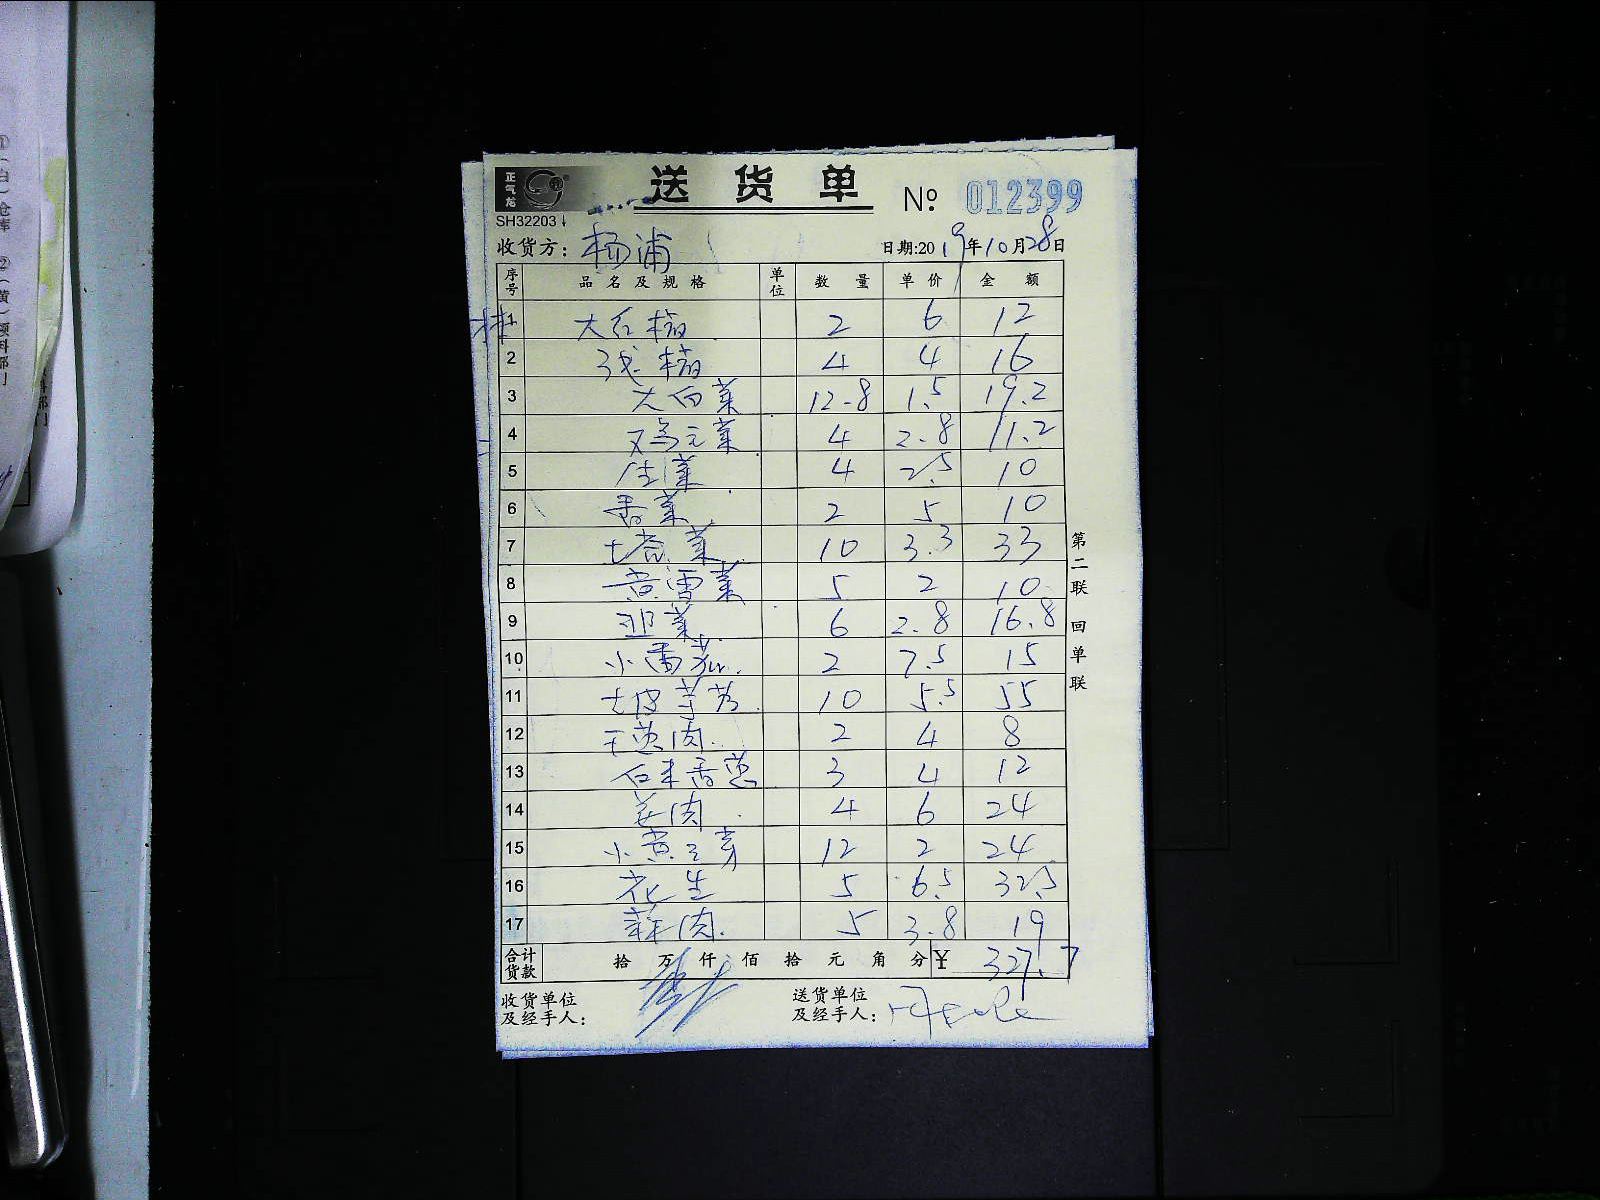 正气龙
送货单 № 012399
SH32203
收货方：杨浦 日期:2019年10月28日
序号 品名及规格 单位 数量 单价 金额
1 大红椒 2 6 12
2 4 4 16
3 大白菜 12.8 1.5 19.2
4 菜 4 2.8 11.2
5 生菜 4 2.5 10
6 香菜 2 5 10
7 塔菜 10 3.3 33
8 菜 5 2 10
9 菜 6 2.8 16.8
10 小番茄 2 7.5 15
11 毛皮芋艿 10 5.5 55
12 葱肉 2 4 8
13 香葱 3 4 12
14 姜肉 4 6 24
15 小黄豆芽 12 2 24
16 花生 5 6.5 32.5
17 肉 5 3.8 19
合计货款 拾 万 仟 佰 拾 元 角 分 ¥ 327.7
收货单位及经手人： 送货单位及经手人：
第二联 回单联